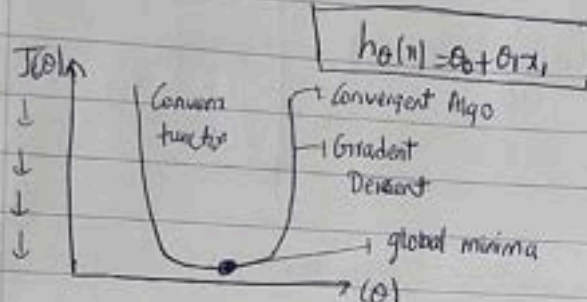 hθ(x) = θ0 + θ1x1
J(θ)
Convex
function
Convergent Algo
Gradent
Decent
global minima
(θ)